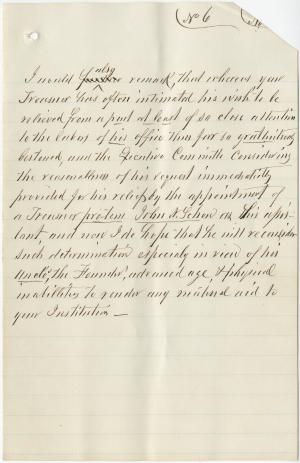 No 6
I would also remark, that whereas your
Treasurer has often intimated his wish to be
relieved from a part at least of so close attention
to the labors of his office thus far so gratuitously
bestowed, and the Executive Committe Considering
the reasonableness of his request immediately
provided for his relief by the appointment of
a Treasurer protem John A. as his assis-
tant, and now I do hope that he will reconsider
such determination especially in view of his
Uncle, the Founder, advanced age, & physical
inabilities to render any material aid to
your Institution —